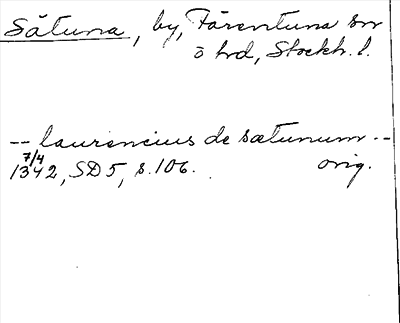 Såtuna, by, Färentuna sn
o hd, Stockh. l.
-- laurencius de sætunum --
7/4 orig.
1342, SD 5, s. 106.